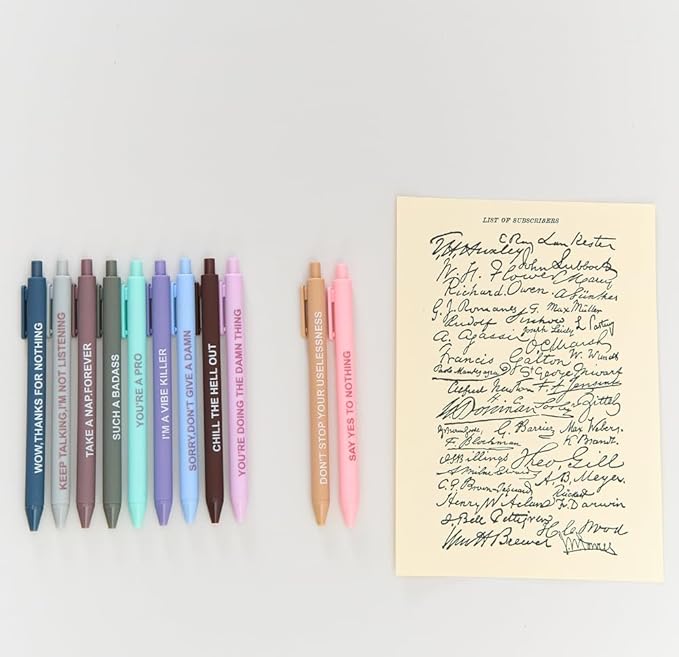 WOW,THANKS FOR NOTHING
KEEP TALKING,I'M NOT LISTENING
TAKE A NAP.FOREVER
SUCH A BADASS
YOU'RE A PRO
I'M A VIBE KILLER
SORRY,DON'T GIVE A DAMN
CHILL THE HELL OUT
YOU'RE DOING THE DAMN THING
DON'T STOP YOUR USELESSNESS
SAY YES TO NOTHING
LIST OF SUBSCRIBERS
E. Ray Lankester
T. H. Huxley
W. H. Flower John Lubbock
Richard Owen. A Günther
G. J. Romanes G. Max Müller
Rudolf Virchow Joseph Leidy
A. Agassiz
O. C. Marsh
Francis Galton W.
St George Mivart
Alfred Newton
Zittel
C. Barrier Max Weber.
F. Blochman K. Brandt.
J. S. Billings Theo. Gill
A. B. Meyer.
C. E. Brown-Sequard
Henry W. Acland F. Darwin
J. Bell Pettigrew H. C. Wood
Wm H Brewer